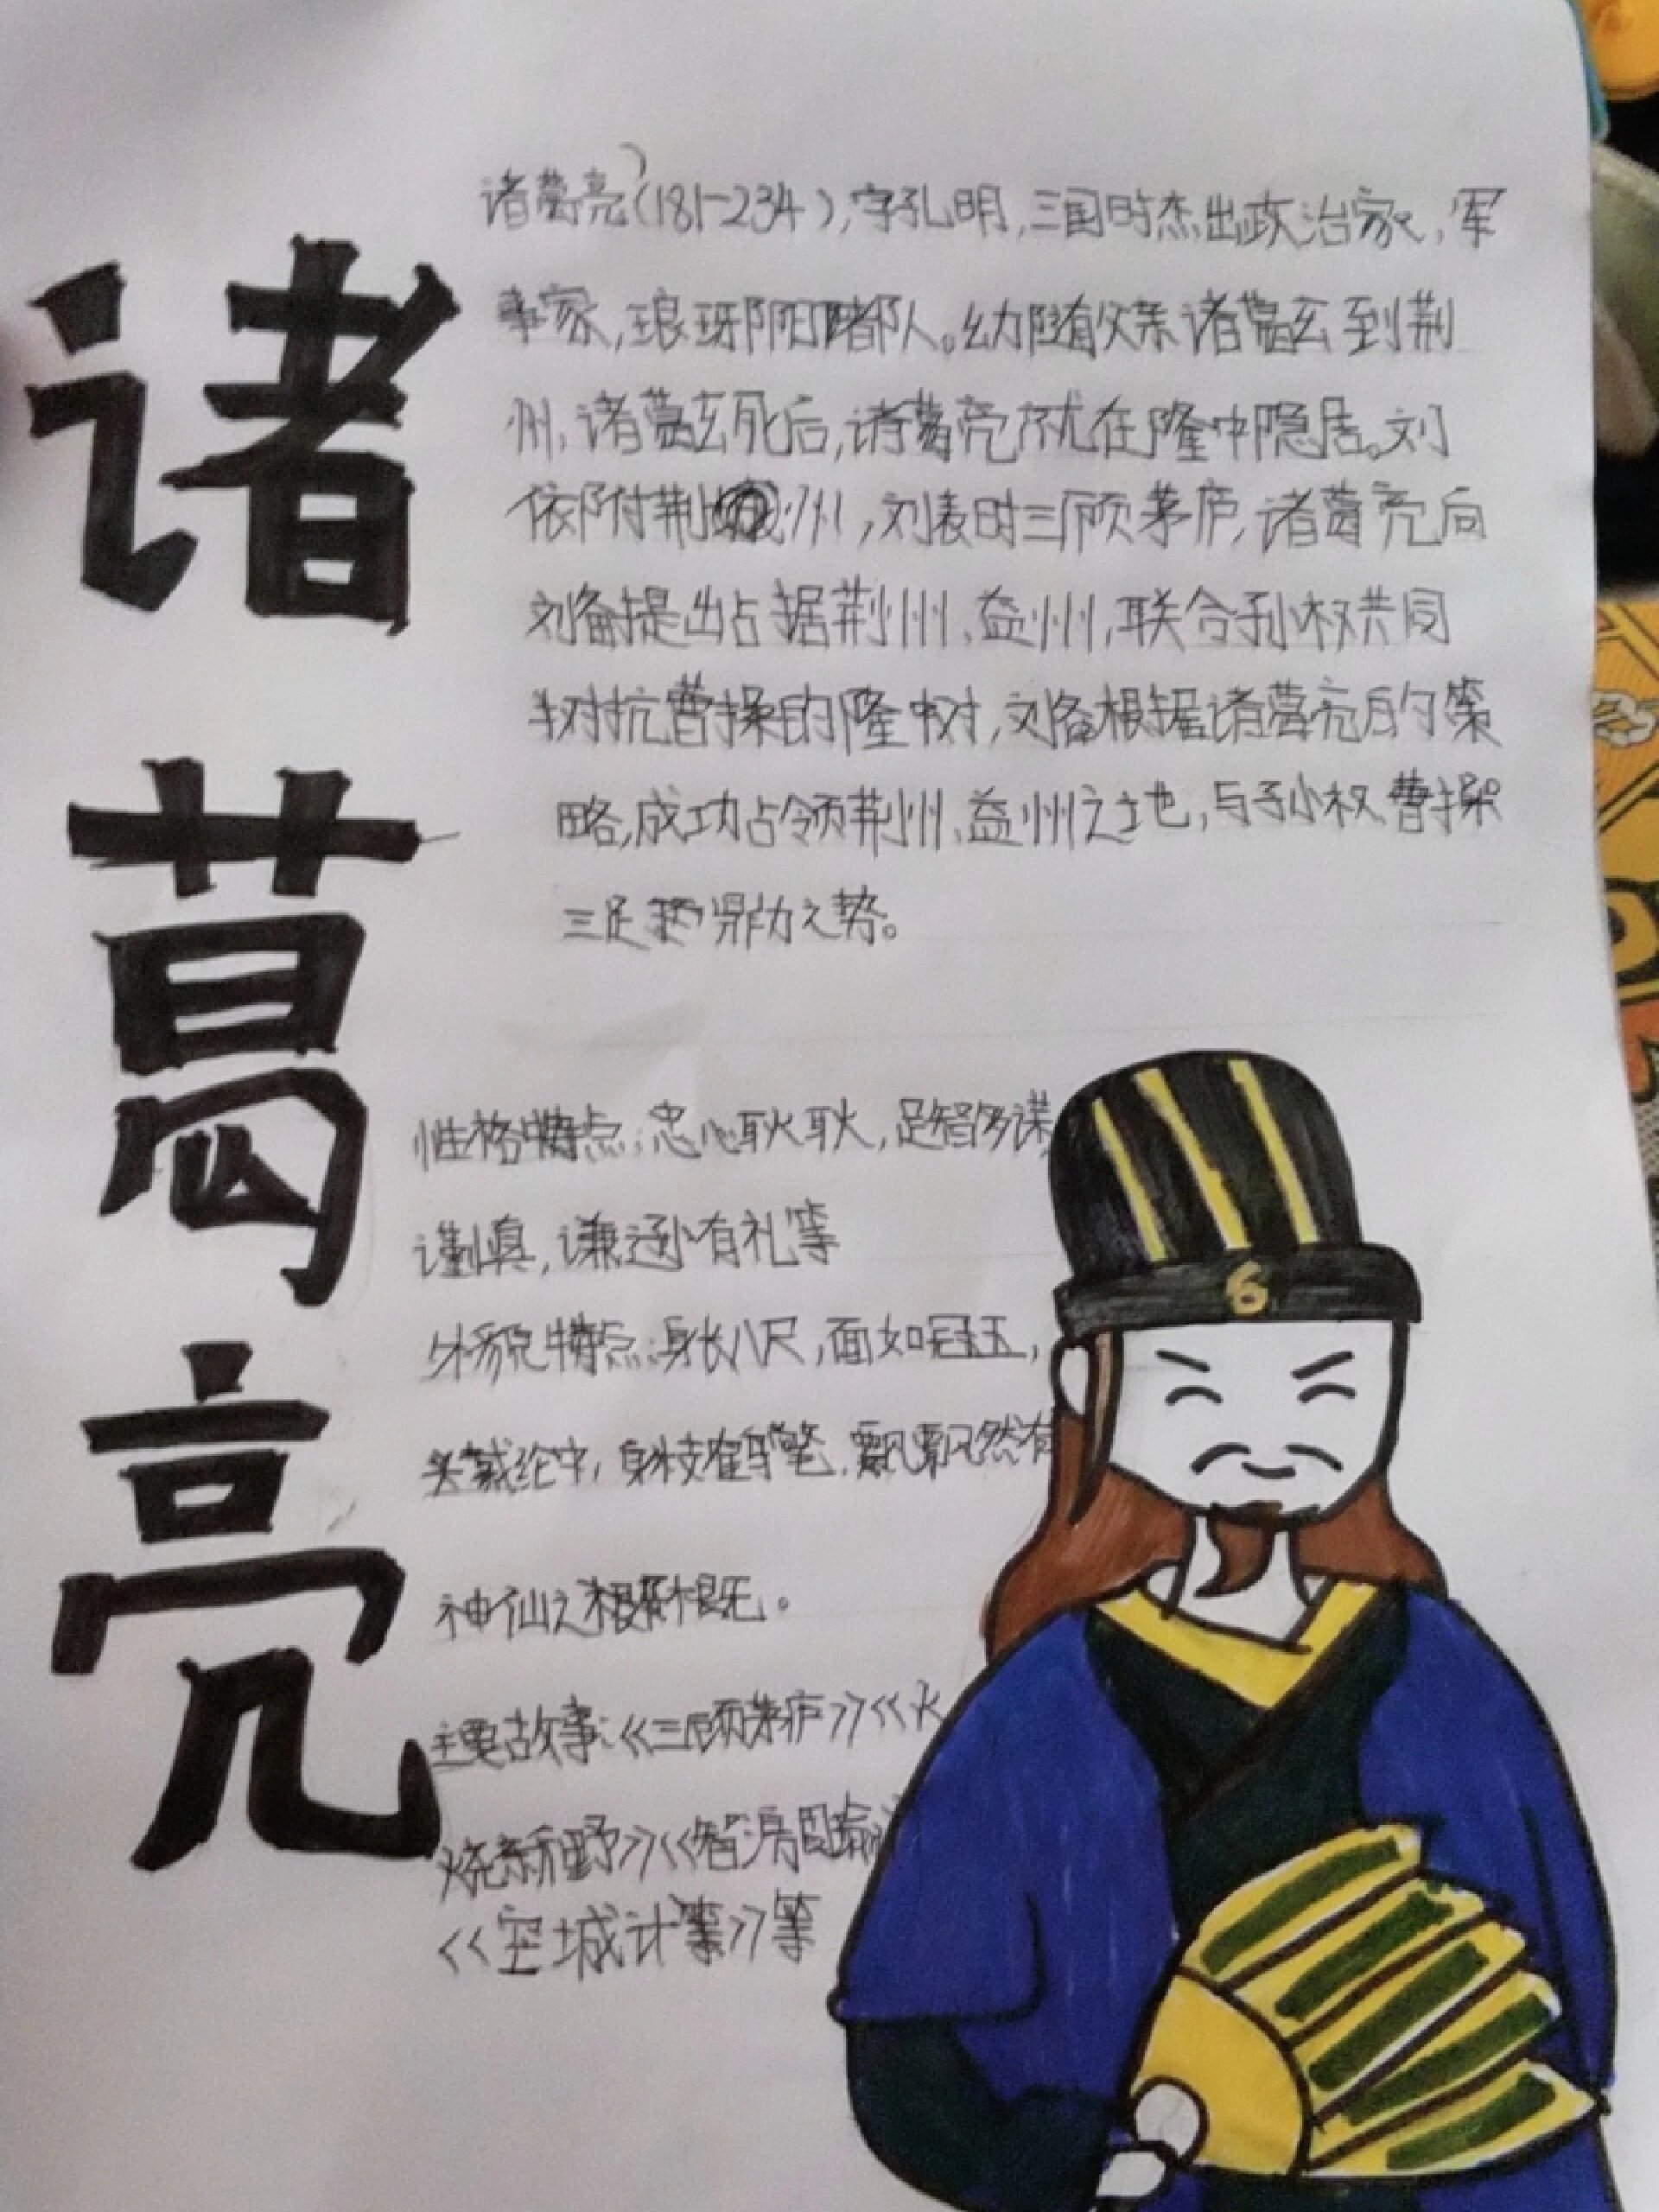 诸葛亮
诸葛亮(181-234),字孔明,三国时杰出政治家,军
事家,琅玡阳都人。幼随父亲诸葛玄到荆
州,诸葛玄死后,诸葛亮就在隆中隐居。刘
依附荆州,刘表时三顾茅庐,诸葛亮向
刘备提出占据荆州、益州,联合孙权共同
对抗曹操的隆中对,刘备根据诸葛亮的策
略,成功占领荆州、益州之地,与孙权、曹操
三足鼎力之势。
性格特点:忠心耿耿,足智多谋,
谨慎,谦逊有礼等
外貌特点:身长八尺,面如冠玉,
头戴纶巾,身披鹤氅,飘飘然有
神仙之概。
主要古故事:《三顾茅庐》《火
烧新野》《智激周瑜
《空城计》等
6